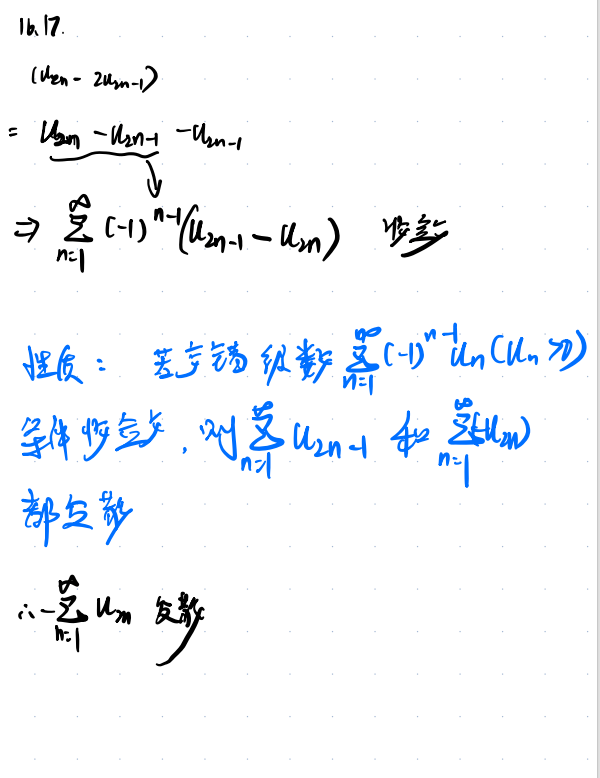 16.17.
(u2n - 2u2n-1)
= u2n - u2n-1 - u2n-1
⇒ ∞∑n=1 (-1)^n-1 (u2n-1 - u2n) 收敛
性质: 若交错级数 ∞∑n=1 (-1)^n-1 un (un>0)
条件收敛, 则 ∞∑n=1 u2n-1 和 ∞∑n=1 (-u2n)
都发散
∴ - ∞∑n=1 u2n 发散